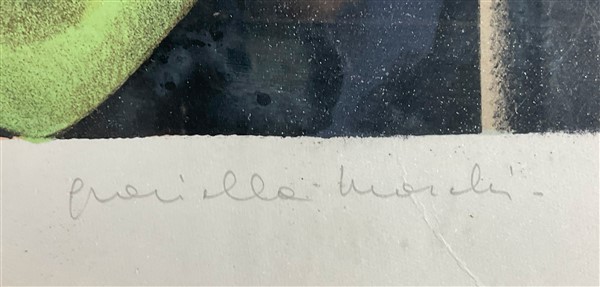 graziella marchi